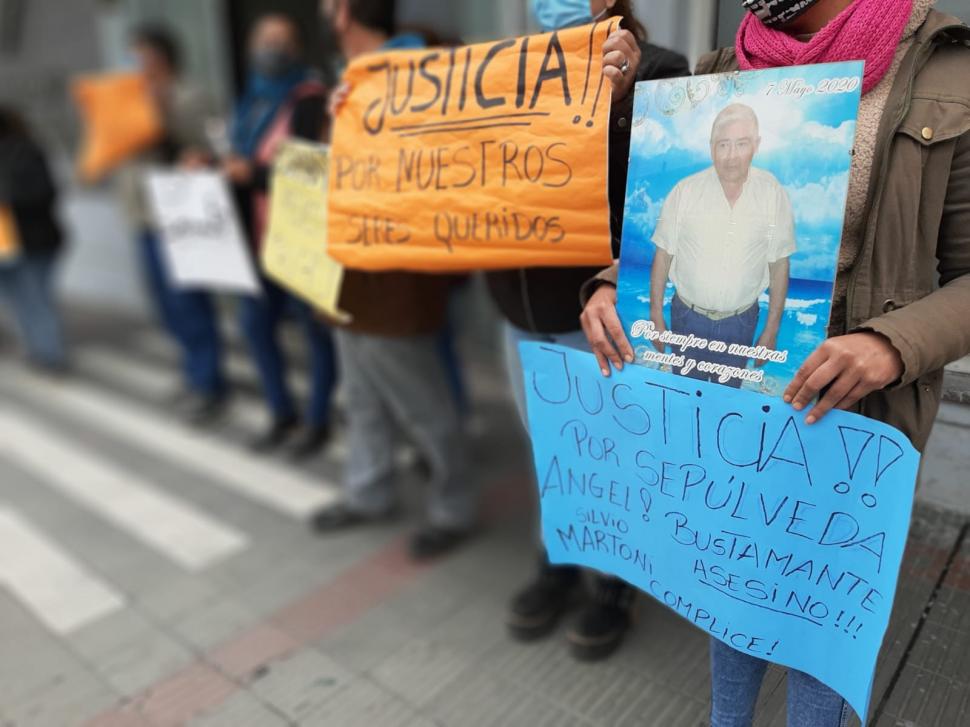 JUSTICIA!!
POR NUESTROS
SERES QUERIDOS
7 Mayo 2020
Por siempre en nuestras
mentes y corazones
JUSTICIA!!
POR SEPÚLVEDA
ANGEL! BUSTAMANTE
SILVIO ASESINO!!!
MARTONI COMPLICE!